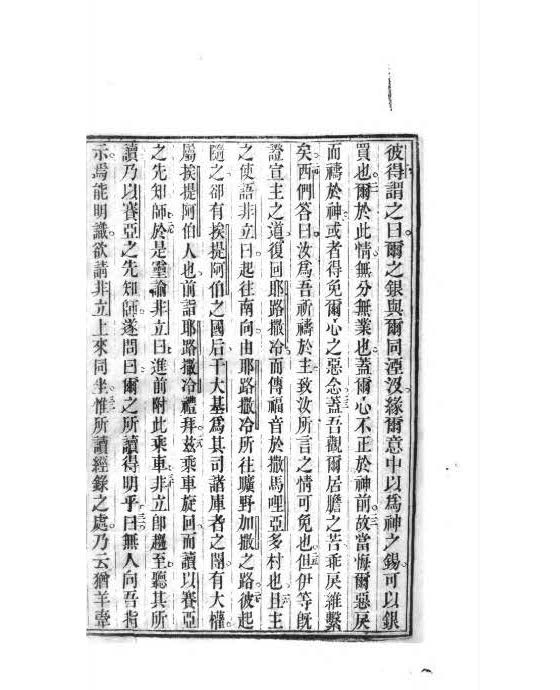 彼得謂之曰爾之銀與爾同湮沒緣爾意中以為神之錫可以銀
買也爾於此情無分無業也蓋爾心不正於神前故當悔爾惡戾
而禱於神或者得免爾心之惡念蓋吾觀爾居膽之苦乖戾維繫
矣西們答曰汝為吾祈禱於主致汝所言之情可免也但伊等旣
證宣主之道復回耶路撒冷而傳福音於撒馬哩亞多村也且主
之使語非立曰起往南向由耶路撒冷所往曠野加撒之路彼起
隨之卻有挨提阿伯之國后干大基為其司諸庫者之閹有大權
屬挨提阿伯人也前詣耶路撒冷禮拜茲乘車旋回而讀以賽亞
之先知師於是靈諭非立曰進前附此乘車非立卽趨至聽其所
讀乃以賽亞之先知師遂問曰爾之所讀得明乎曰無人向吾指
示焉能明識欲請非立上來同坐惟所讀經錄之處乃云猶羊牽